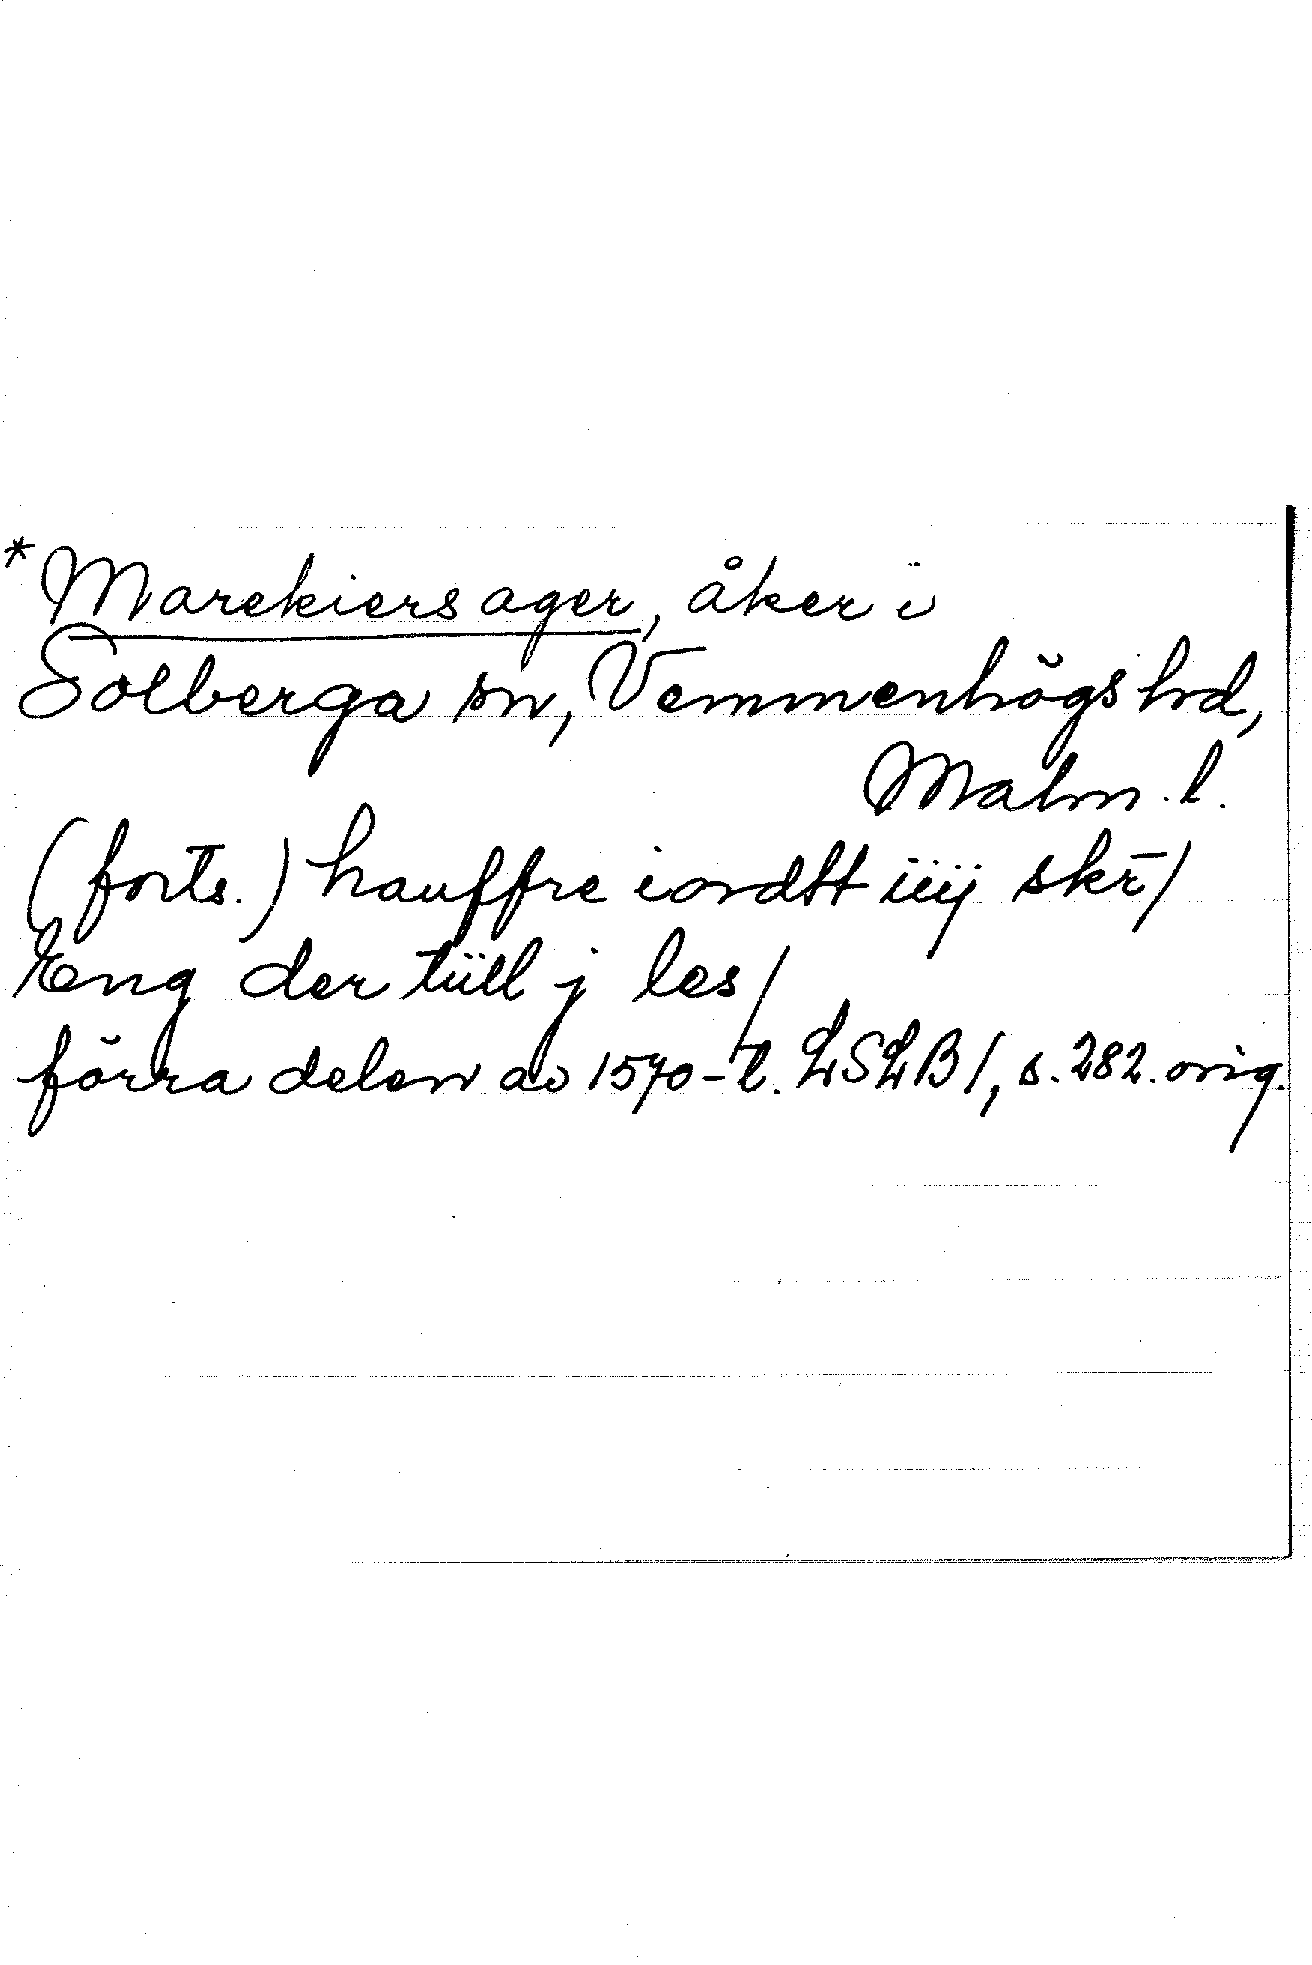 *Marekiersager, åker i
Solberga sn, Vemmenhögs hd,
Malm. l.
(forts.) hauffre iordtt iiij skr̄/
Eng der tiill j les/
förra delen av 1570-t. LSLB 1, s. 282. orig.